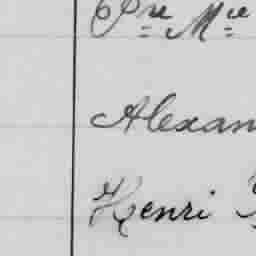 Pre Mie
Alexan
Henri